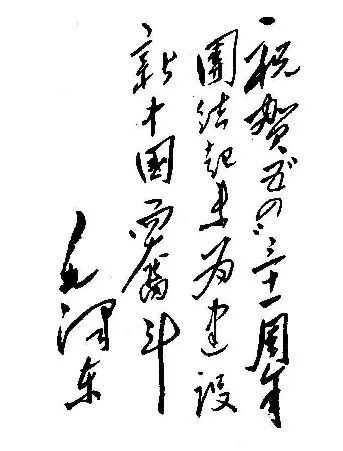 祝賀“五四”三十一周年
團結起来为建設
新中國而奮斗
毛泽东